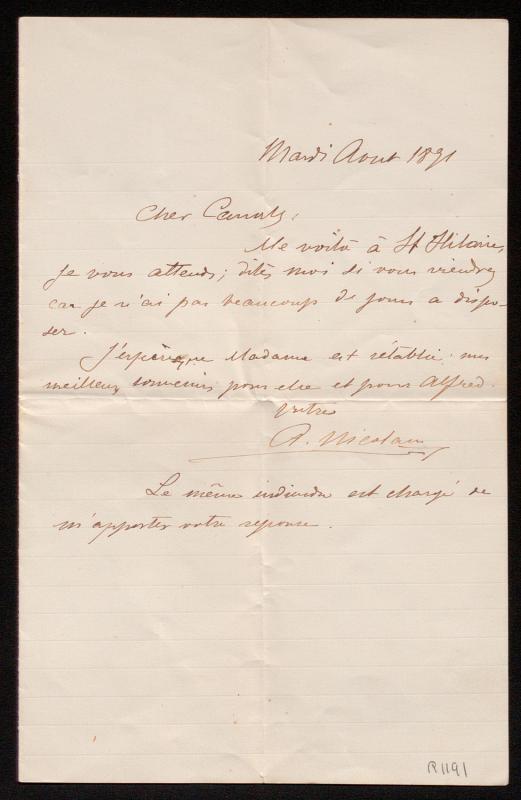 Mardi Aout 1891
Cher Canals,
Me voilà à St Hilaire,
je vous attends; dites moi si vous viendrez
car je n'ai pas beaucoup de jours a dispo-
ser.
J'espère que Madame est rétablie. mes
meilleurs souvenirs pour elle et pour Alfred.
Votre
A. Nicolau
Le même individu est chargé de
m'apporter votre reponse.
R1191